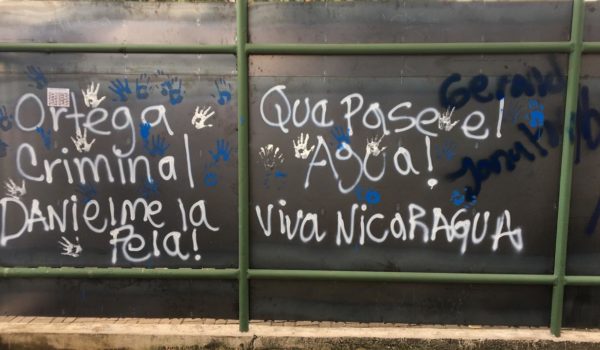 Ortega
Criminal
DANIEL me la
Pela!
Que Pase el
Agua!
VIVA NICARAGUA
Gerald